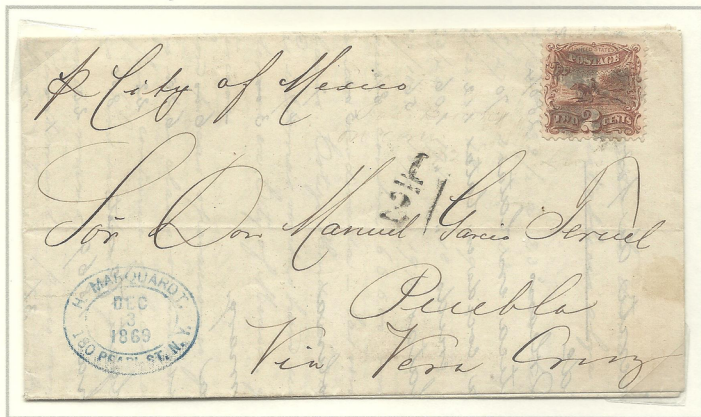 p City of Mexico
UNITED STATES
POSTAGE
TWO 2 CENTS
Sōr Dōn Manuel Garcia Teruel
Puebla
Via Vera Cruz
H. MARQUARDT.
DEC
3
1869
160 PEARL ST. N.Y.